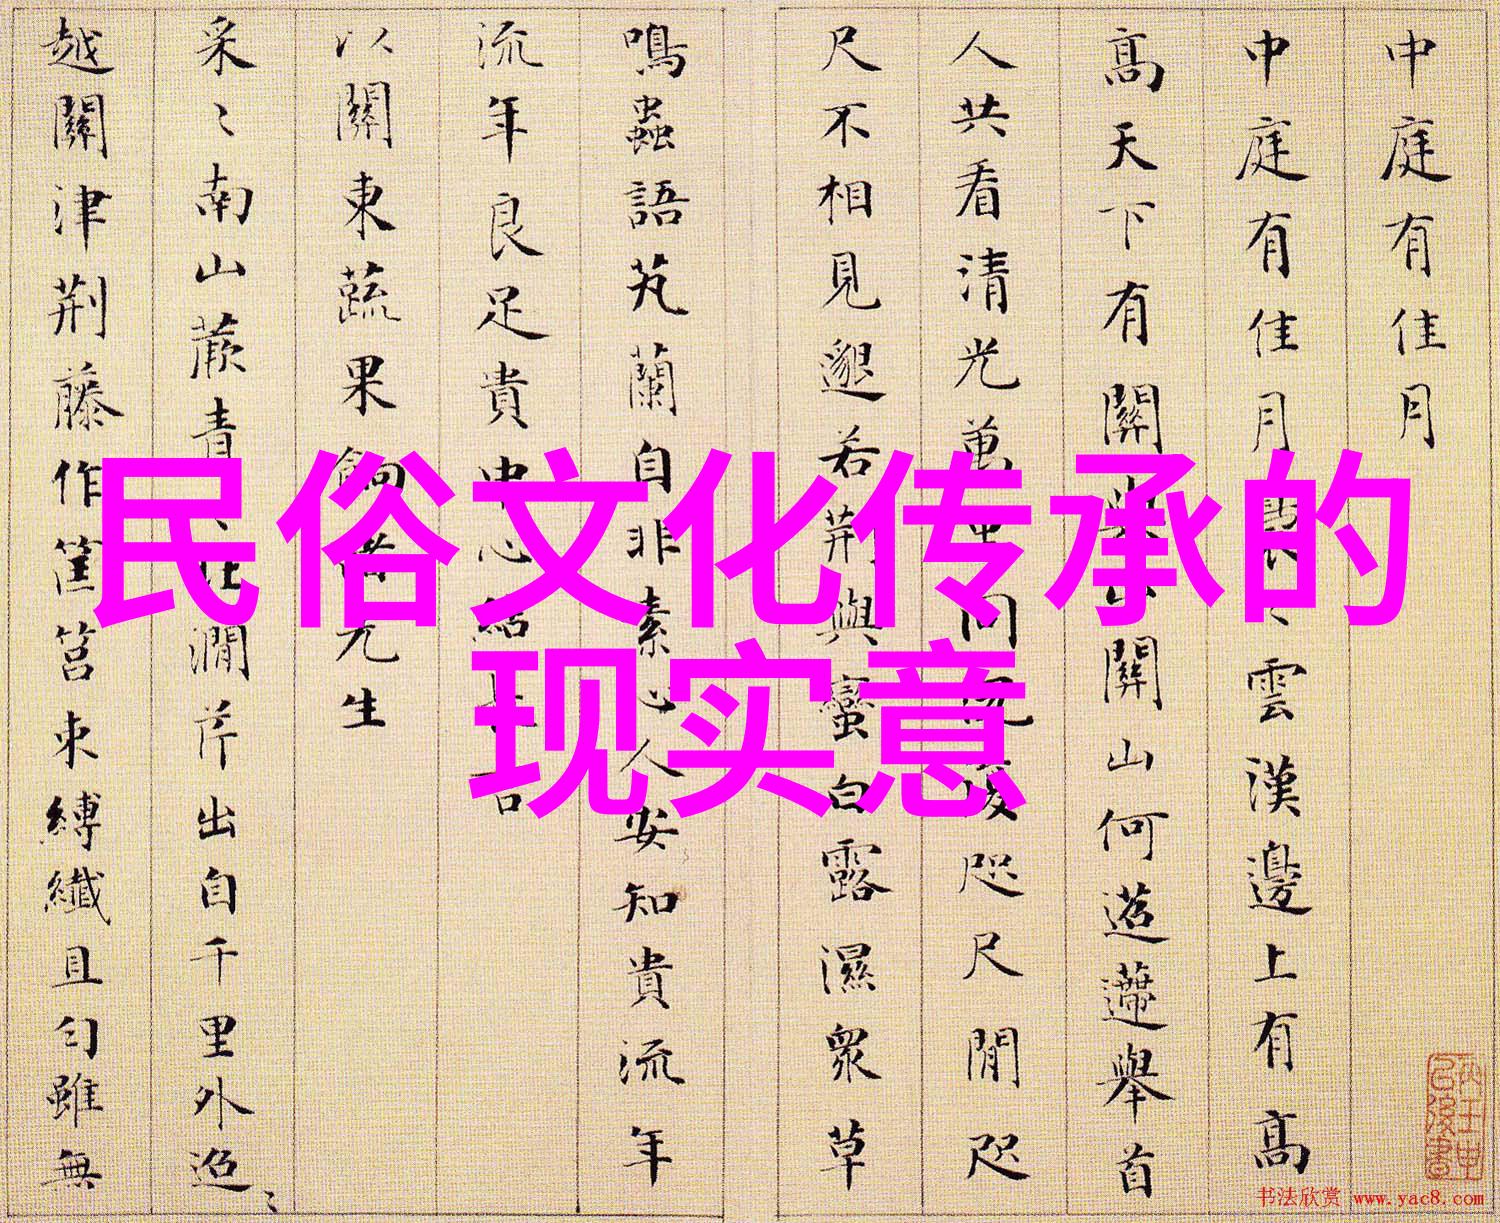 民俗文化传承的
现实意
中庭有佳月
中庭有佳月雲漢邊上有高
高天下有關關山何迢遰舉首
人共看清光萬同咫尺間咫
尺不相見邈若荊與蠻白露濕衆草
鳴蟲語芄蘭自非素心人安知貴流年
流年良足貴中心結
以關東蔬果餉先生
采〻南山蕨青在澗芹出自千里外迢〻
越關津荊藤作筐筥束縛纖且勻雖無
书法欣赏 www.yac8.com